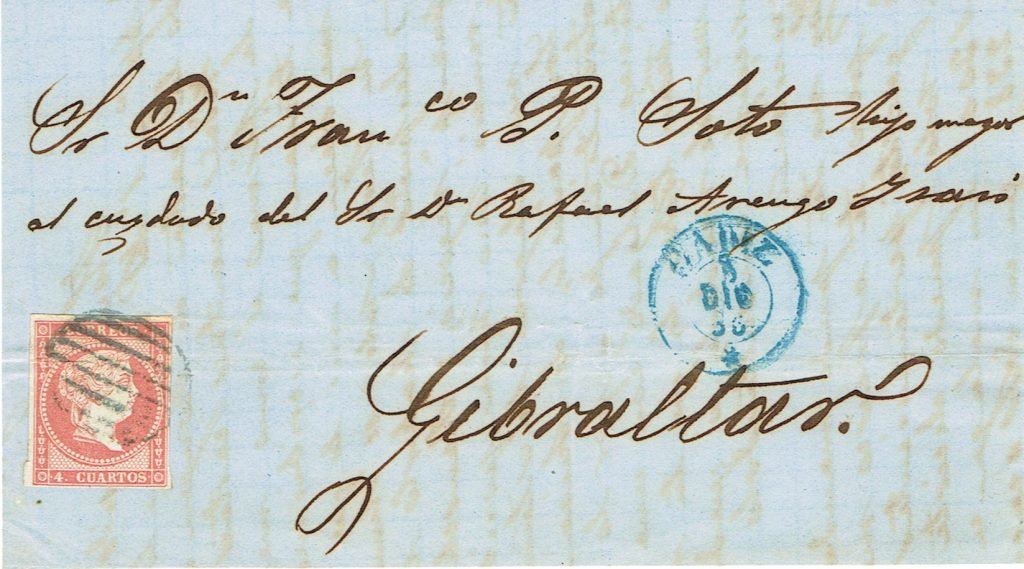 Sr Dn Franco P. Soto hijo mayor
al cuydado del Sr Dn Rafael Arengo
CADIZ
5
DIC
56
Gibraltar.
CORREOS
4. CUARTOS